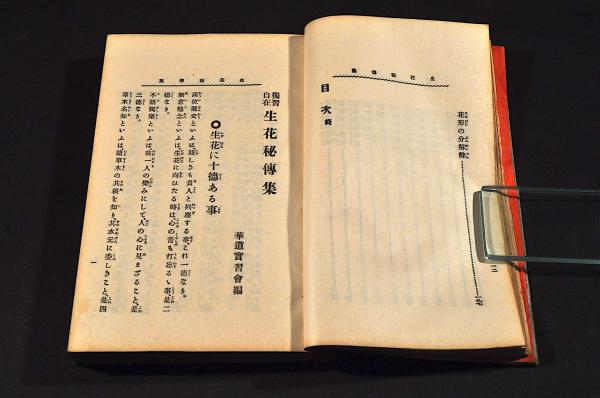 生花秘傳集
花形の分解
目次終
生花秘傳集
獨習自在 生花秘傳集
華道實習會編
○生花に十德ある事
高位嚴交といふは、賤しきも貴人と列座する事、これ一德なり。
無意他念といふは、生花に向ひたる時は、心の苦も打忘るゝ事是二
德なり。
不語獨樂といふは、我一人の樂みにして、人の心に見えざること、是
三德なり。
草木名知といふは諸草木の其根を知り、其水元に委しきこと、是四
一